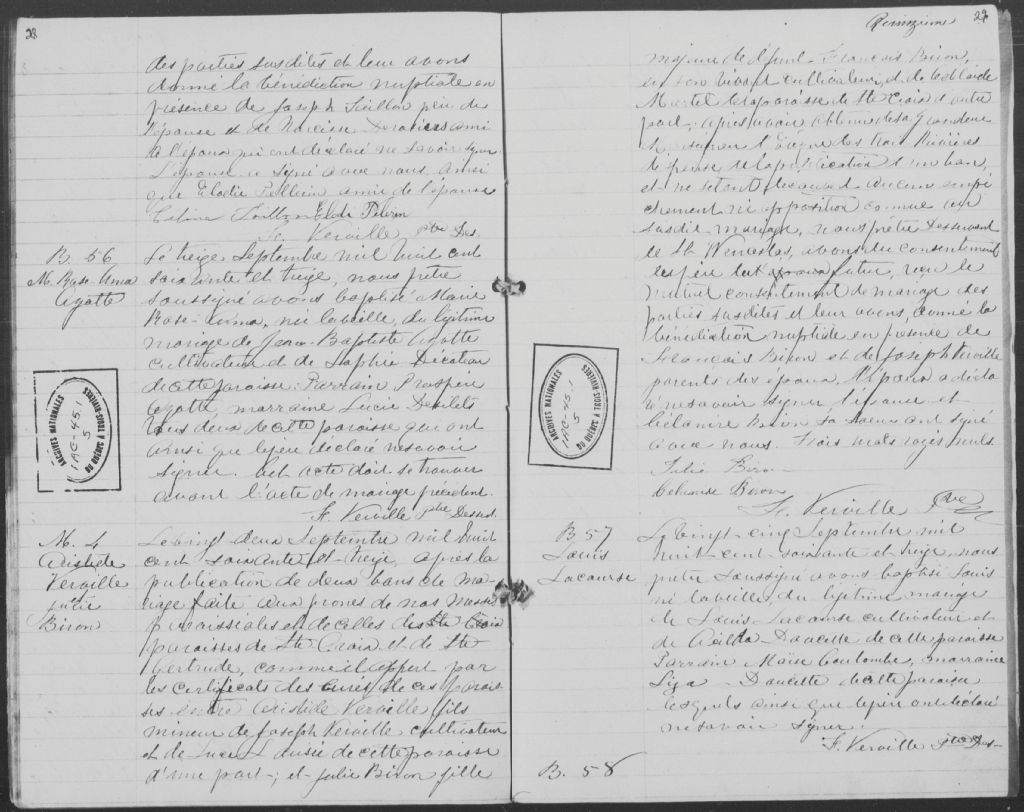 28
des parties susdites et leur avons
donné la bénédiction nuptiale en
présence de Joseph père de
l'épouse et de Narcisse ami
de l'époux qui ont déclaré ne savoir signer
L'épouse a signé avec nous, ainsi
que Elodie Pellerin amie de l'épouse
Elodie Pelerin
F. Verville Ptre Des.
B. 56
M. Rose-Anna
Ayotte
Le treize Septembre mil huit cent
soixante et treize, nous prêtre
soussigné avons baptisé Marie
Rose-Anna, née la veille, du légitime
mariage de Jean-Baptiste Ayotte
cultivateur et de Sophie
de cette paroisse. Parrain Prosper
Ayotte, marraine Lucie Desilets
tous deux de cette paroisse qui ont
ainsi que le père déclaré ne savoir
signer. Cet acte doit se trouver
avant l'acte de mariage précédent.
F. Verville Ptre Desst.
ARCHIVES NATIONALES
1AC-45.1
5
DU QUÉBEC À TROIS-RIVIÈRES
M. 4
Aristide
Verville
Julie
Biron
Le vingt deux Septembre mil huit
cent soixante et treize, après la
publication de deux bans de ma-
riage faite aux prones de nos Messes
paroissiales et de celles des
paroisses de Ste Croix et de Ste
Gertrude, comme il appert par
les certificats des curés de ces parois-
ses entre Aristide Verville fils
mineur de Joseph Verville cultivateur
et de Luce de cette paroisse
d'une part; et Julie Biron fille
29
Quinzième
majeure de défunt François Biron,
en son vivant cultivateur, et de Adelaide
Martel de la paroisse de Ste Croix d'autre
part; après avoir obtenu de sa Grandeur
Monseigneur l'Evêque des Trois Rivières
dispense de la publication d'un ban,
et ne s'étant découvert aucun empê-
chement ni opposition connue au
susdit mariage, nous prêtre Desservant
de St. Wenceslas, avons du consentement
du père du futur, reçu le
mutuel consentement de mariage des
parties susdites et leur avons donné la
bénédiction nuptiale en présence de
François Biron et de Joseph Verville
parents des époux. L'époux a décla-
ré ne savoir signer l'épouse et
Célanire Biron sa soeur ont signé
avec nous. Trois mots rayés nuls
Julie Biron
Célanire Biron
F. Verville Ptre
ARCHIVES NATIONALES
1AC-45.1
5
DU QUÉBEC À TROIS-RIVIÈRES
B 57
Louis
Lacourse
Le vingt-cinq Septembre mil
huit-cent soixante et treize, nous
prêtre soussigné avons baptisé Louis
né la veille du légitime mariage
de Louis Lacourse cultivateur et
de Doucette de cette paroisse
Parrain Moïse Coulombe, marraine
Liza Doucette de cette paroisse
lesquels ainsi que le père ont déclaré
ne savoir signer.
F. Verville Ptre Des-
B. 58